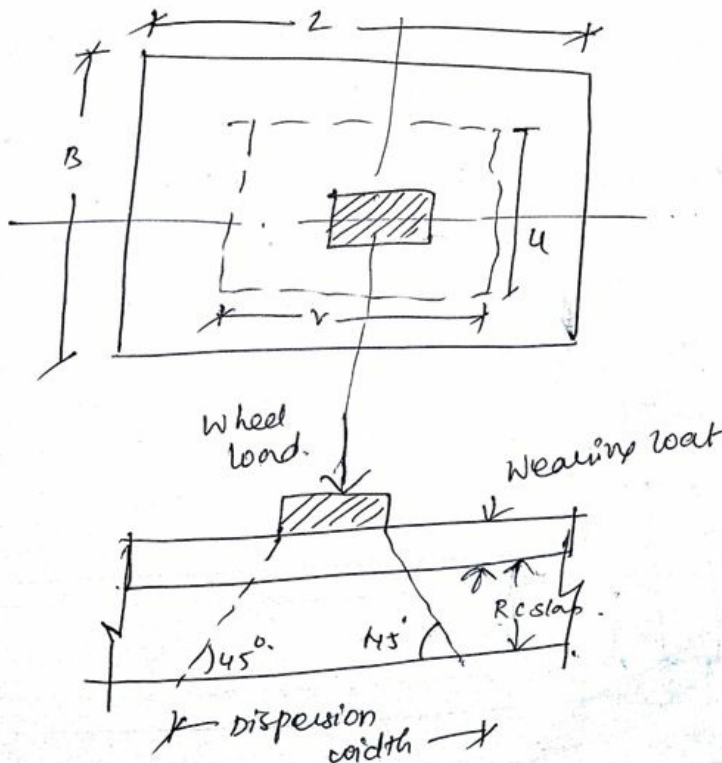 L
B
u
v
Wheel
load.
Wearing coat
RC slab.
45°.
45°
Dispersion
width